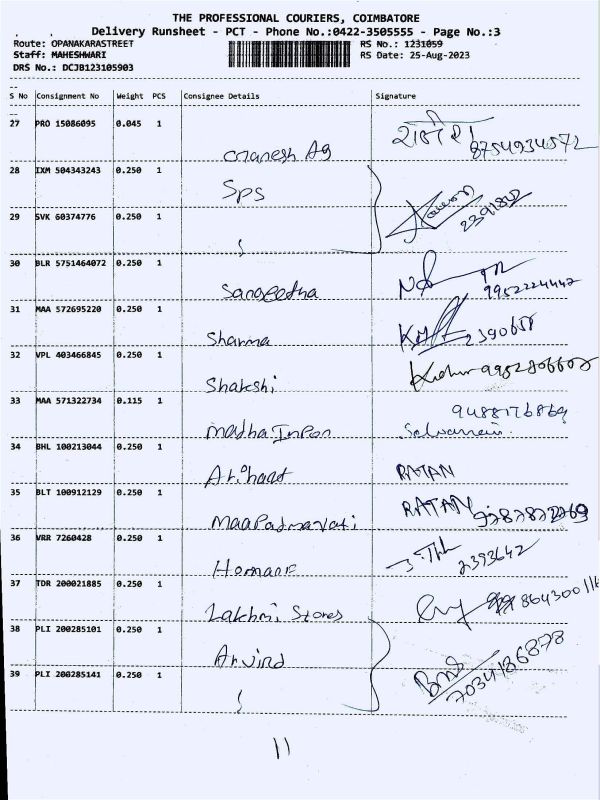 THE PROFESSIONAL COURIERS, COIMBATORE
Delivery Runsheet - PCT - Phone No.:0422-3505555 - Page No.:3
Route: OPANAKARASTREET
RS No.: 1231059
Staff: MAHESHWARI
RS Date: 25-Aug-2023
DRS No.: DCJB123105903
S No Consignment No Weight PCS Consignee Details Signature
27 PRO 15086095 0.045 1
Ganesh Ag 8754934572
28 IXM 504343243 0.250 1
Sps
29 SVK 60374776 0.250 1
30 BLR 5751464072 0.250 1
Sangeetha 9952224442
31 MAA 572695220 0.250 1
Sharma
32 VPL 403466845 0.250 1
Shakshi
33 MAA 571322734 0.115 1
9488176869
Madha Inpon
34 BHL 100213044 0.250 1
Arihant RATAN
35 BLT 100912129 0.250 1
Maa Padmavati RATAN
36 VRR 7260428 0.250 1
2393642
37 TDR 200021885 0.250 1
Lakhmi Stores
38 PLI 200285101 0.250 1
Arvind
39 PLI 200285141 0.250 1
7034186878
11